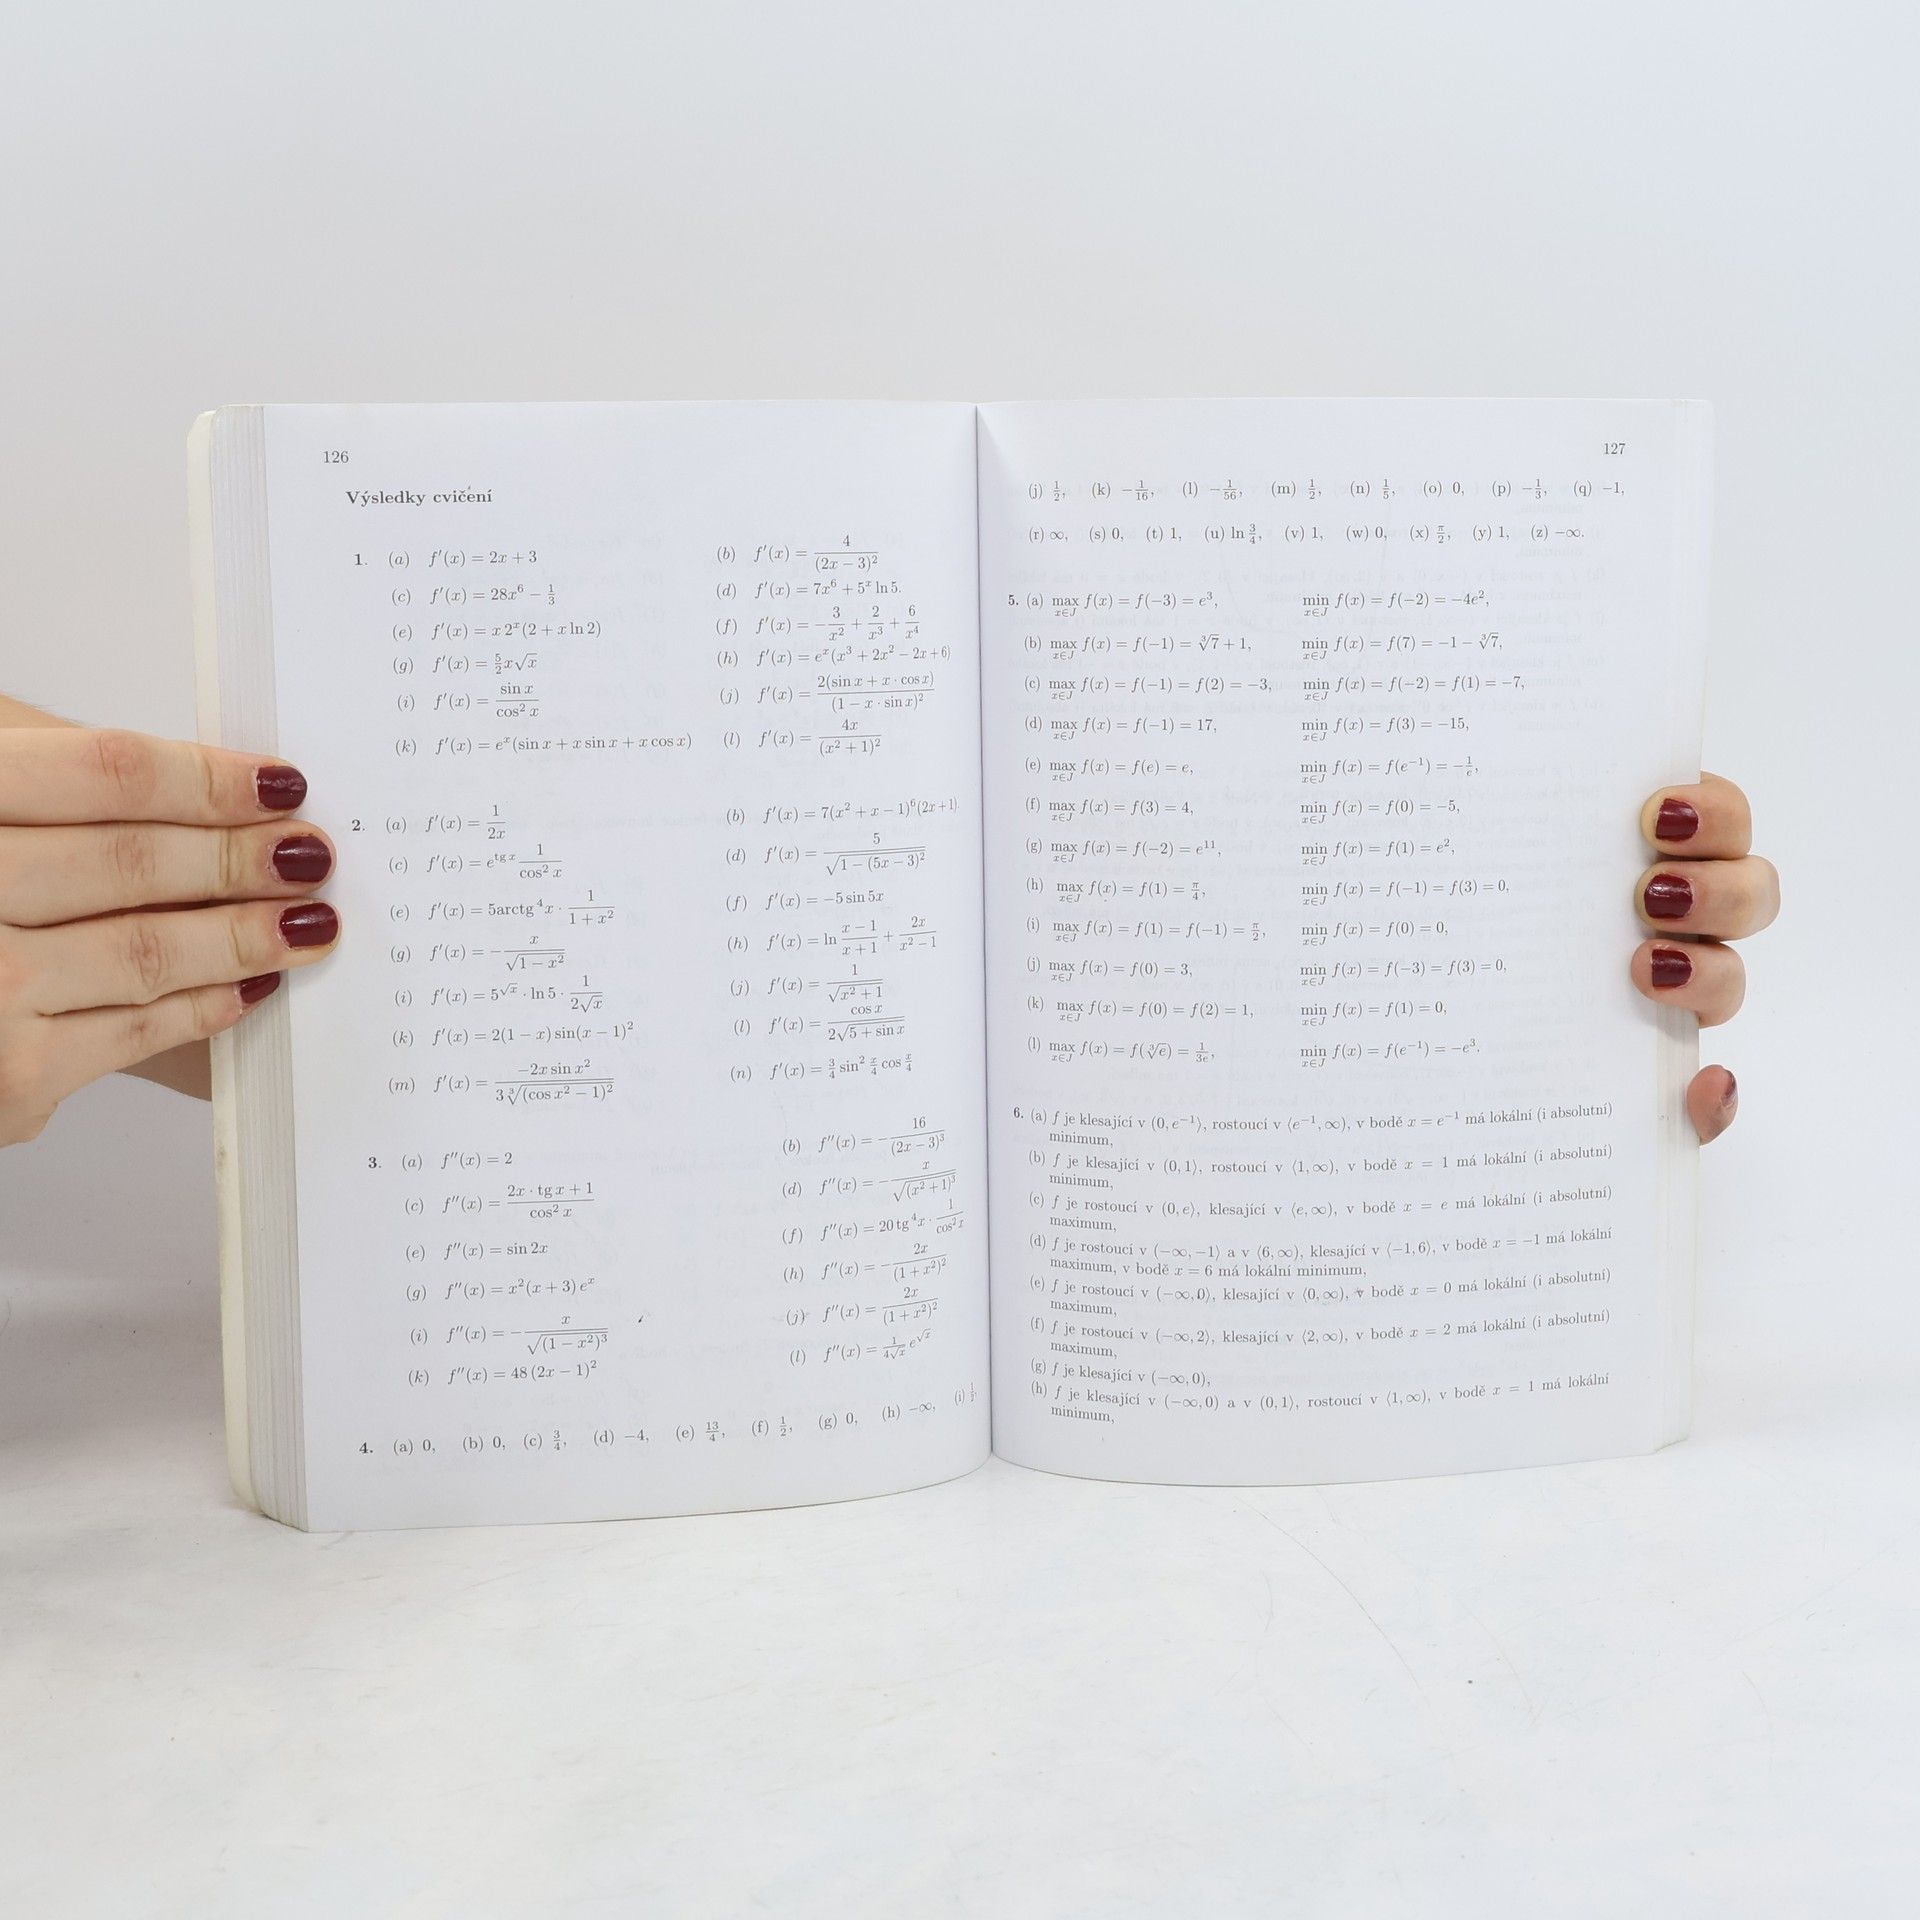 126
Výsledky cvičení
1. (a) f′(x) = 2x + 3 (b) f′(x) = 4/(2x − 3)²
(c) f′(x) = 28x⁶ − 1/3 (d) f′(x) = 7x⁶ + 5ˣ ln 5.
(e) f′(x) = x 2ˣ(2 + x ln 2) (f) f′(x) = −3/x² + 2/x³ + 6/x⁴
(g) f′(x) = 5/2 x√x (h) f′(x) = eˣ(x³ + 2x² − 2x + 6)
(i) f′(x) = sin x/cos² x (j) f′(x) = 2(sin x + x · cos x)/(1 − x · sin x)²
(k) f′(x) = eˣ(sin x + x sin x + x cos x) (l) f′(x) = 4x/(x² + 1)²
2. (a) f′(x) = 1/2x (b) f′(x) = 7(x² + x − 1)⁶(2x + 1)
(c) f′(x) = e^(tg x) 1/cos² x (d) f′(x) = 5/√(1 − (5x − 3)²)
(e) f′(x) = 5arctg⁴x · 1/(1 + x²) (f) f′(x) = −5 sin 5x
(g) f′(x) = −x/√(1 − x²) (h) f′(x) = ln (x − 1)/(x + 1) + 2x/(x² − 1)
(i) f′(x) = 5^(√x) · ln 5 · 1/(2√x) (j) f′(x) = 1/√(x² + 1)
(k) f′(x) = 2(1 − x) sin(x − 1)² (l) f′(x) = cos x/(2√(5 + sin x))
(m) f′(x) = −2x sin x²/(3∛((cos x² − 1)²)) (n) f′(x) = 3/4 sin² x/4 cos x/4
3. (a) f″(x) = 2 (b) f″(x) = −16/(2x − 3)³
(c) f″(x) = (2x · tg x + 1)/cos² x (d) f″(x) = −x/√((x² + 1)³)
(e) f″(x) = sin 2x (f) f″(x) = 20 tg⁴x · 1/cos² x
(g) f″(x) = x²(x + 3) eˣ (h) f″(x) = −2x/(1 + x²)²
(i) f″(x) = −x/√((1 − x²)³) (j) f″(x) = 2x/(1 + x²)²
(k) f″(x) = 48 (2x − 1)² (l) f″(x) = 1/(4√x) e^(√x)
4. (a) 0, (b) 0, (c) 3/4, (d) −4, (e) 13/4, (f) 1/2, (g) 0, (h) −∞, (i)
127
(j) 1/2, (k) −1/16, (l) −1/56, (m) 1/2, (n) 1/5, (o) 0, (p) −1/3, (q) −1,
(r) ∞, (s) 0, (t) 1, (u) ln 3/4, (v) 1, (w) 0, (x) π/2, (y) 1, (z) −∞.
5. (a) max x∈J f(x) = f(−3) = e³, min x∈J f(x) = f(−2) = −4e²,
(b) max x∈J f(x) = f(−1) = ∛7 + 1, min x∈J f(x) = f(7) = −1 − ∛7,
(c) max x∈J f(x) = f(−1) = f(2) = −3, min x∈J f(x) = f(−2) = f(1) = −7,
(d) max x∈J f(x) = f(−1) = 17, min x∈J f(x) = f(3) = −15,
(e) max x∈J f(x) = f(e) = e, min x∈J f(x) = f(e⁻¹) = −1/e,
(f) max x∈J f(x) = f(3) = 4, min x∈J f(x) = f(0) = −5,
(g) max x∈J f(x) = f(−2) = e¹¹, min x∈J f(x) = f(1) = e²,
(h) max x∈J f(x) = f(1) = π/4, min x∈J f(x) = f(−1) = f(3) = 0,
(i) max x∈J f(x) = f(1) = f(−1) = π/2, min x∈J f(x) = f(0) = 0,
(j) max x∈J f(x) = f(0) = 3, min x∈J f(x) = f(−3) = f(3) = 0,
(k) max x∈J f(x) = f(0) = f(2) = 1, min x∈J f(x) = f(1) = 0,
(l) max x∈J f(x) = f(∛e) = 1/3e, min x∈J f(x) = f(e⁻¹) = −e³.
6. (a) f je klesající v (0, e⁻¹⟩, rostoucí v ⟨e⁻¹, ∞), v bodě x = e⁻¹ má lokální (i absolutní)
minimum,
(b) f je klesající v (0, 1⟩, rostoucí v ⟨1, ∞), v bodě x = 1 má lokální (i absolutní)
minimum,
(c) f je rostoucí v (0, e⟩, klesající v ⟨e, ∞), v bodě x = e má lokální (i absolutní)
maximum,
(d) f je rostoucí v (−∞, −1⟩ a v ⟨6, ∞), klesající v ⟨−1, 6⟩, v bodě x = −1 má lokální
maximum, v bodě x = 6 má lokální minimum,
(e) f je rostoucí v (−∞, 0⟩, klesající v ⟨0, ∞), v bodě x = 0 má lokální (i absolutní)
maximum,
(f) f je rostoucí v (−∞, 2⟩, klesající v ⟨2, ∞), v bodě x = 2 má lokální (i absolutní)
maximum,
(g) f je klesající v (−∞, 0),
(h) f je klesající v (−∞, 0) a v (0, 1⟩, rostoucí v ⟨1, ∞), v bodě x = 1 má lokální
minimum,